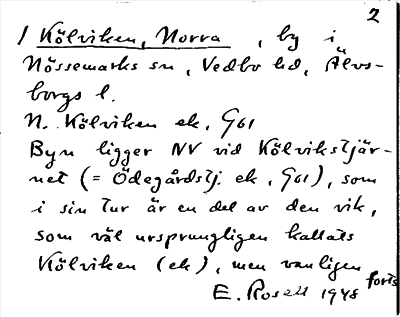 2
/ Kölviken, Norra, by i
Nössemarks sn, Vedbo hd, Älvs-
borgs l.
N. Kölviken ek. G61
Byn ligger NV vid Kölvikstjär-
net (= Ödegårdstj. ek, G61), som
i sin tur är en del av den vik,
som väl ursprungligen kallats
Kölviken (ek), men vanligen
forts
E. Rosell 1948